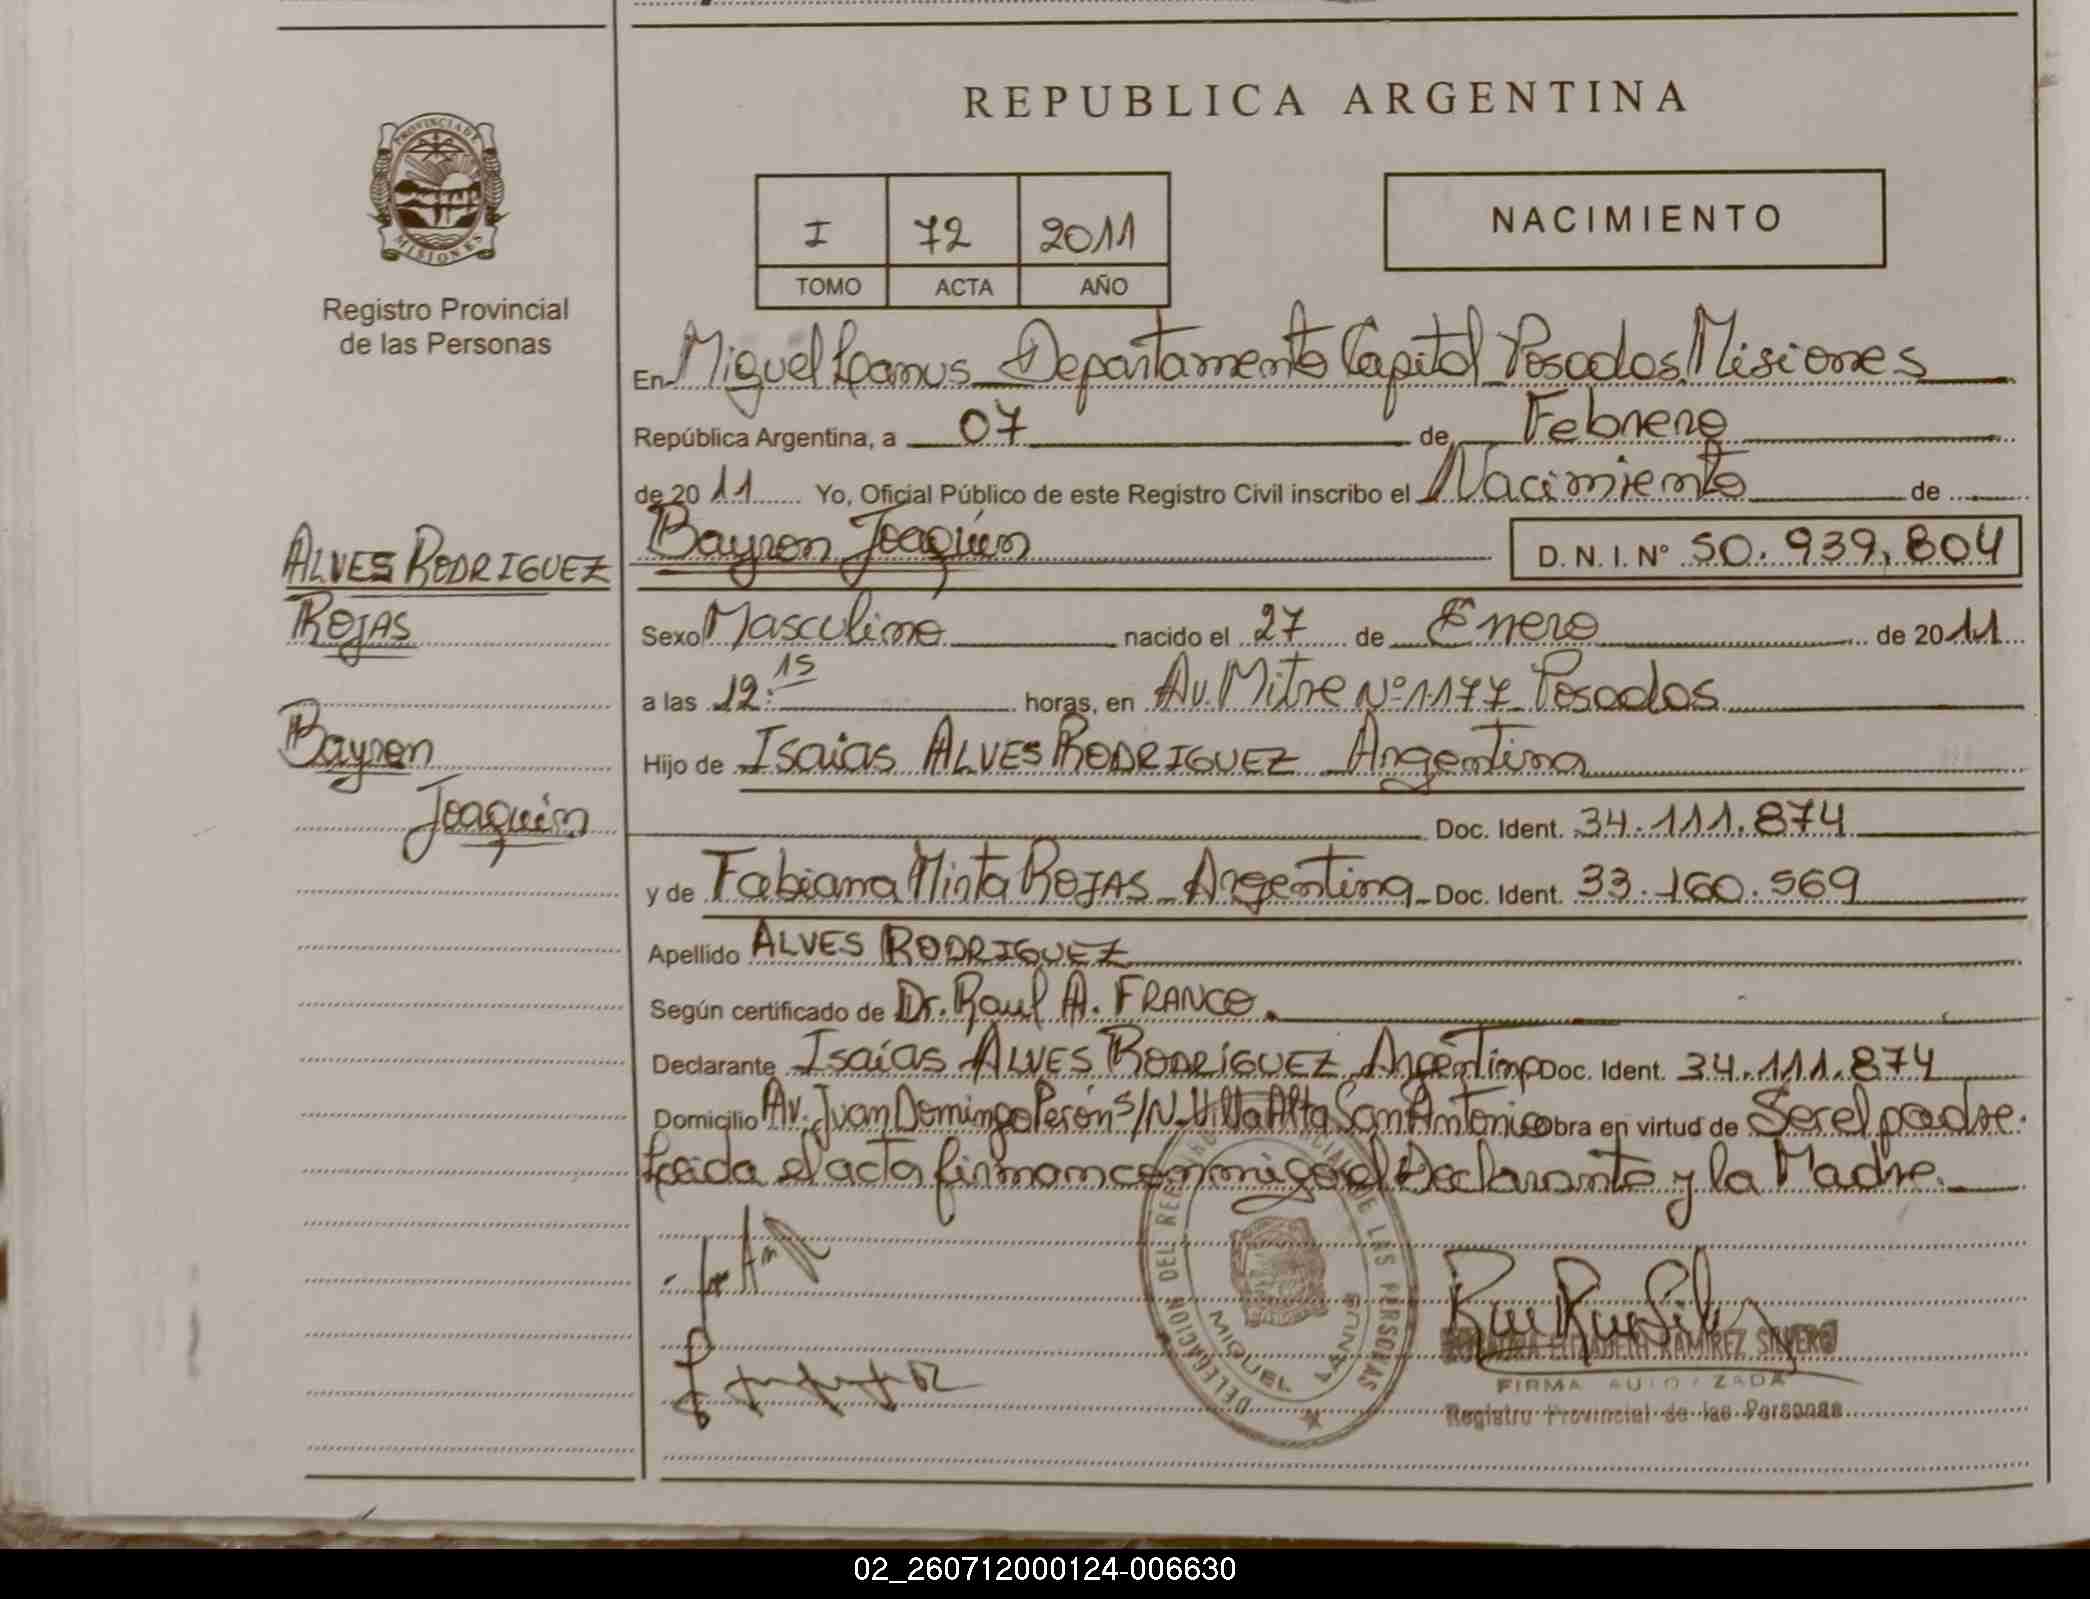 REPUBLICA ARGENTINA
PROVINCIA DE MISIONES
Registro Provincial
de las Personas
I 72 2011
TOMO ACTA AÑO
NACIMIENTO
En Miguel Lanus Departamento Capital Posadas Misiones
República Argentina, a 07 de Febrero
de 2011 Yo, Oficial Público de este Registro Civil inscribo el Nacimiento de
Bayron Joaquín D. N. I. N° 50.939.804
ALVES RODRIGUEZ
ROJAS
Bayron
Joaquín
Sexo Masculino nacido el 27 de Enero de 2011
a las 12:15 horas, en Av. Mitre Nº 1177 Posadas
Hijo de Isaias ALVES RODRIGUEZ Argentina
Doc. Ident. 34.111.874
y de Fabiana Mirta ROJAS Argentina Doc. Ident. 33.160.569
Apellido ALVES RODRIGUEZ
Según certificado de Dr. Raul A. FRANCO.
Declarante Isaías ALVES RODRÍGUEZ Argentino Doc. Ident. 34.111.874
Domicilio Av. Juan Domingo Perón S/N Villa Alta San Antonio obra en virtud de Ser el padre.
Leida el acta firman conmigo el Declarante y la Madre.
DELEGACION DEL REGISTRO PROVINCIAL DE LAS PERSONAS
MIGUEL LANUS
ELIZABETH RAMIREZ SILVERO
FIRMA AUTORIZADA
Registro Provincial de las Personas
02_260712000124-006630